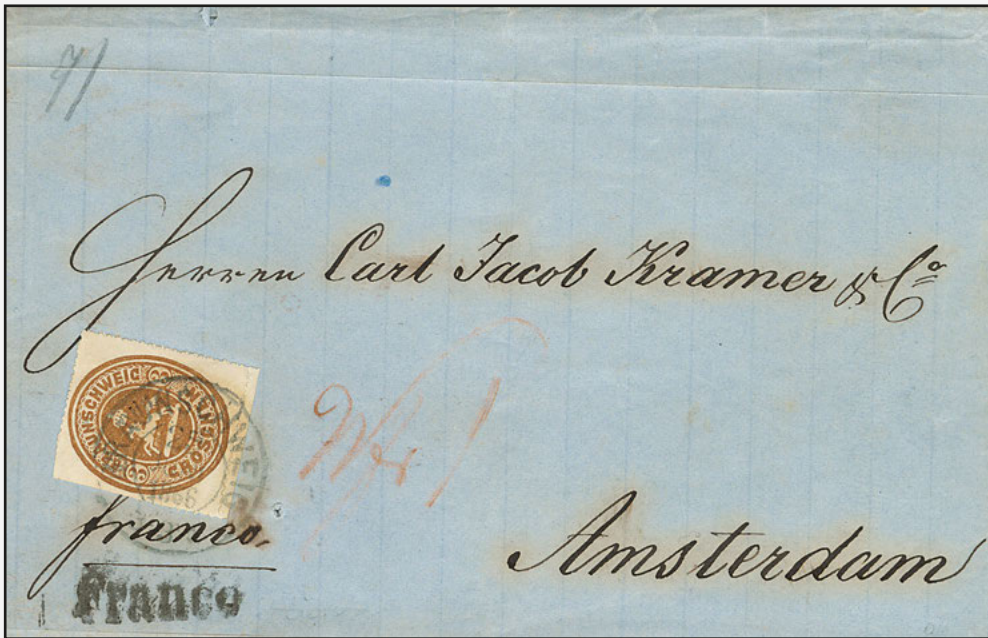 7/
Herren Carl Jacob Kramer & Cº
BRAUNSCHWEIG
GROSCHEN
franco.
Amsterdam
Franco